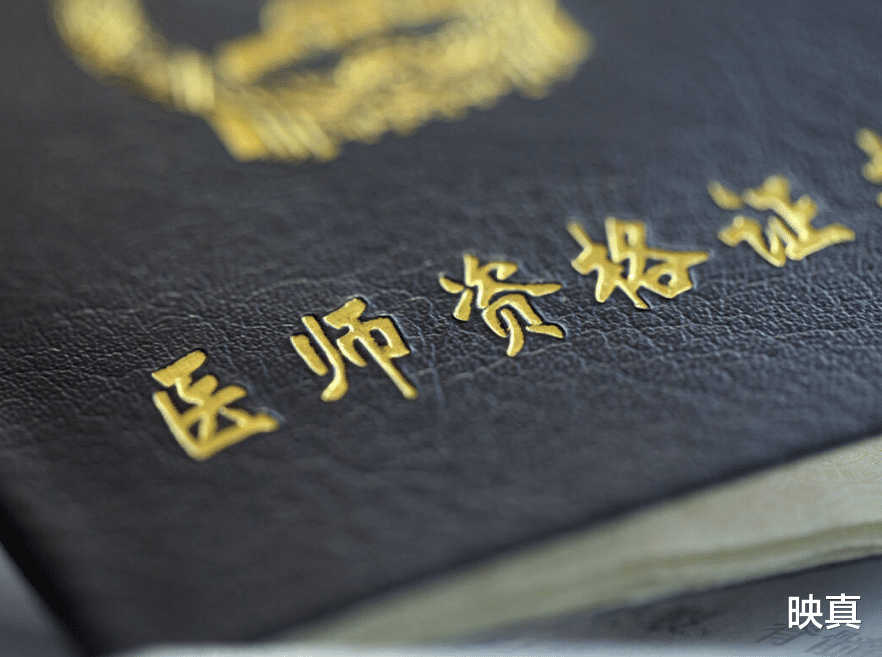 医师资格证
映真